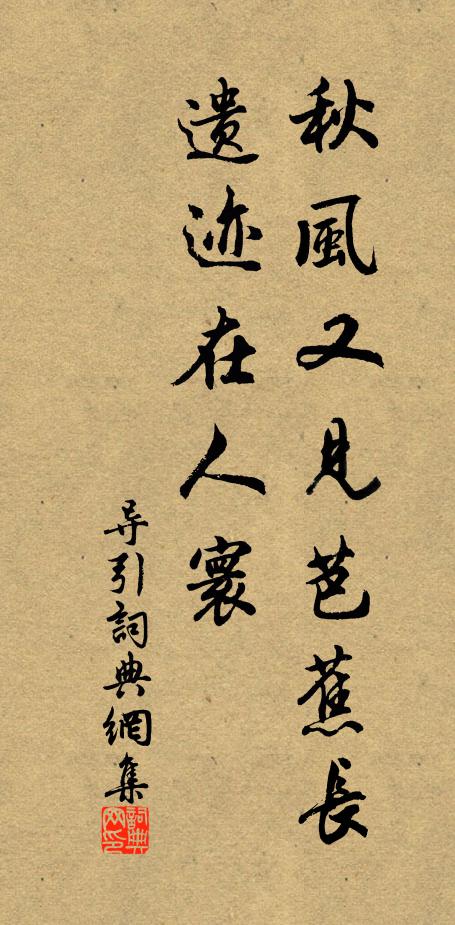 秋風又見芭蕉長
遺迹在人寰
导引詞典網集
詞典网印